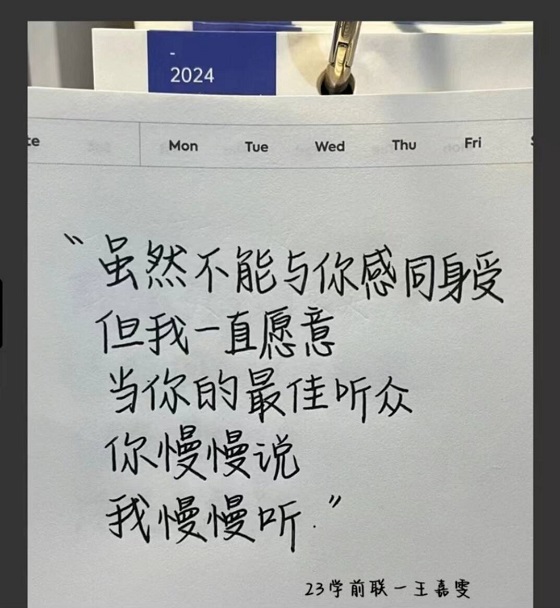 -
2024
te Mon Tue Wed Thu Fri S
“虽然不能与你感同身受
但我一直愿意
当你的最佳听众
你慢慢说
我慢慢听.”
23学前联一王嘉雯